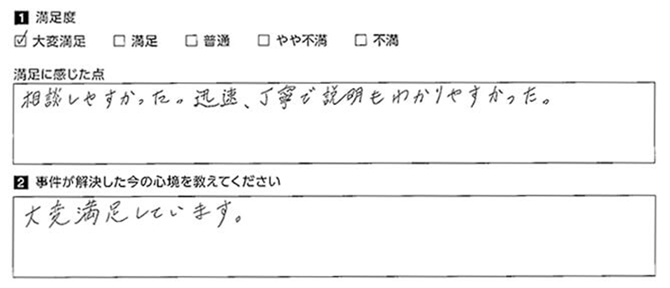 1 満足度
☑ 大変満足 □ 満足 □ 普通 □ やや不満 □ 不満
満足に感じた点
相談しやすかった。迅速、丁寧で説明もわかりやすかった。
2 事件が解決した今の心境を教えてください
大変満足しています。